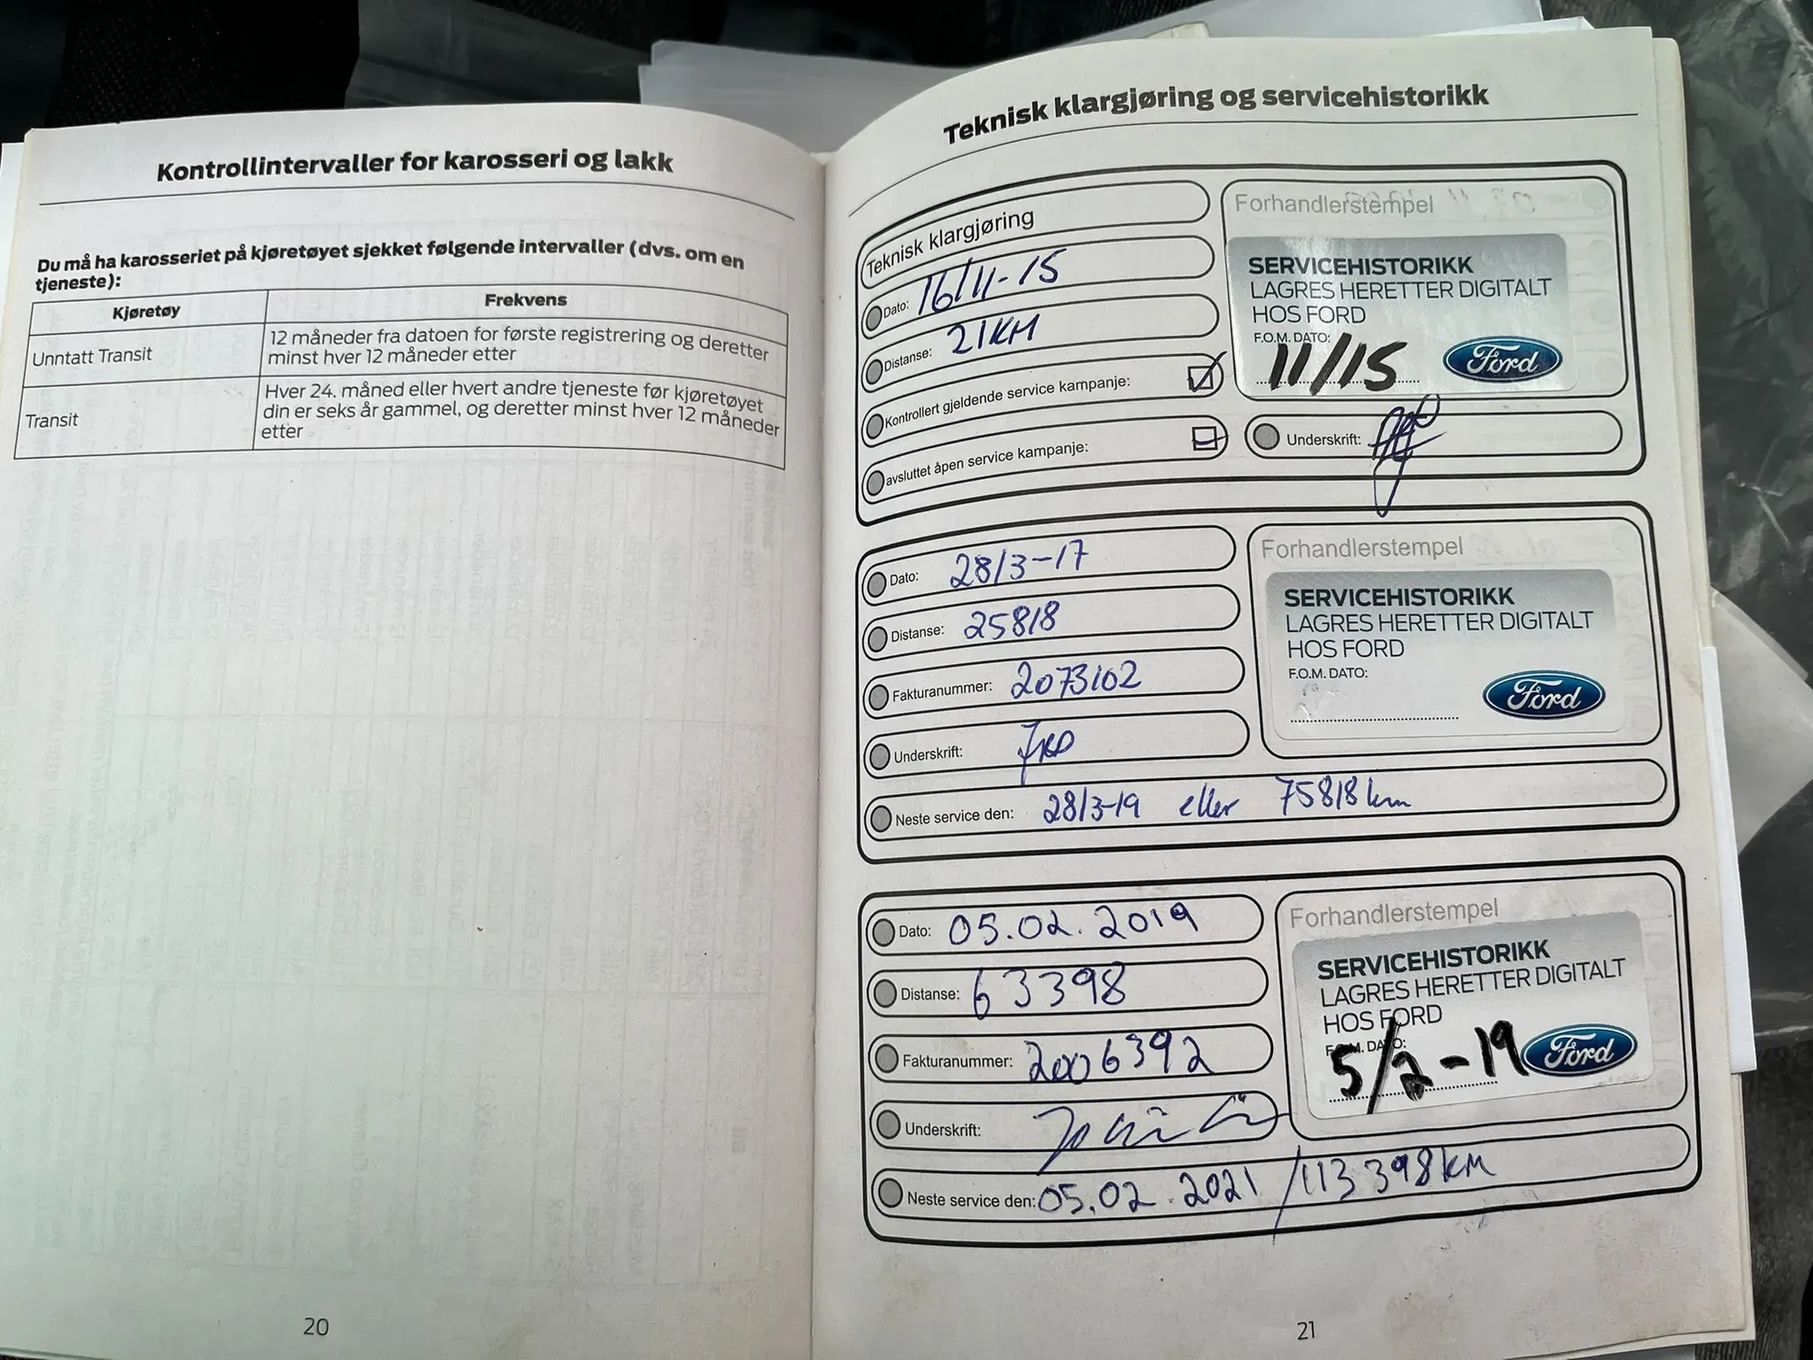 Kontrollintervaller for karosseri og lakk
Du må ha karosseriet på kjøretøyet sjekket følgende intervaller (dvs. om en
tjeneste):
Kjøretøy
Frekvens
Unntatt Transit
12 måneder fra datoen for første registrering og deretter
minst hver 12 måneder etter
Transit
Hver 24. måned eller hvert andre tjeneste før kjøretøyet
din er seks år gammel, og deretter minst hver 12 måneder
etter
20
Teknisk klargjøring og servicehistorikk
Teknisk klargjøring
Dato: 16/11-15
Distanse: 21KM
Kontrollert gjeldende service kampanje:
avsluttet åpen service kampanje:
Forhandlerstempel
SERVICEHISTORIKK
LAGRES HERETTER DIGITALT
HOS FORD
F.O.M. DATO:
11/15
Ford
Underskrift:
Dato: 28/3-17
Distanse: 25818
Fakturanummer: 2073102
Underskrift:
Neste service den: 28/3-19 eller 75818km
Forhandlerstempel
SERVICEHISTORIKK
LAGRES HERETTER DIGITALT
HOS FORD
F.O.M. DATO:
Ford
Dato: 05.02.2019
Distanse: 63398
Fakturanummer: 2006392
Underskrift:
Neste service den: 05.02.2021 / 113 398KM
Forhandlerstempel
SERVICEHISTORIKK
LAGRES HERETTER DIGITALT
HOS FORD
F.O.M. DATO:
5/2-19
Ford
21